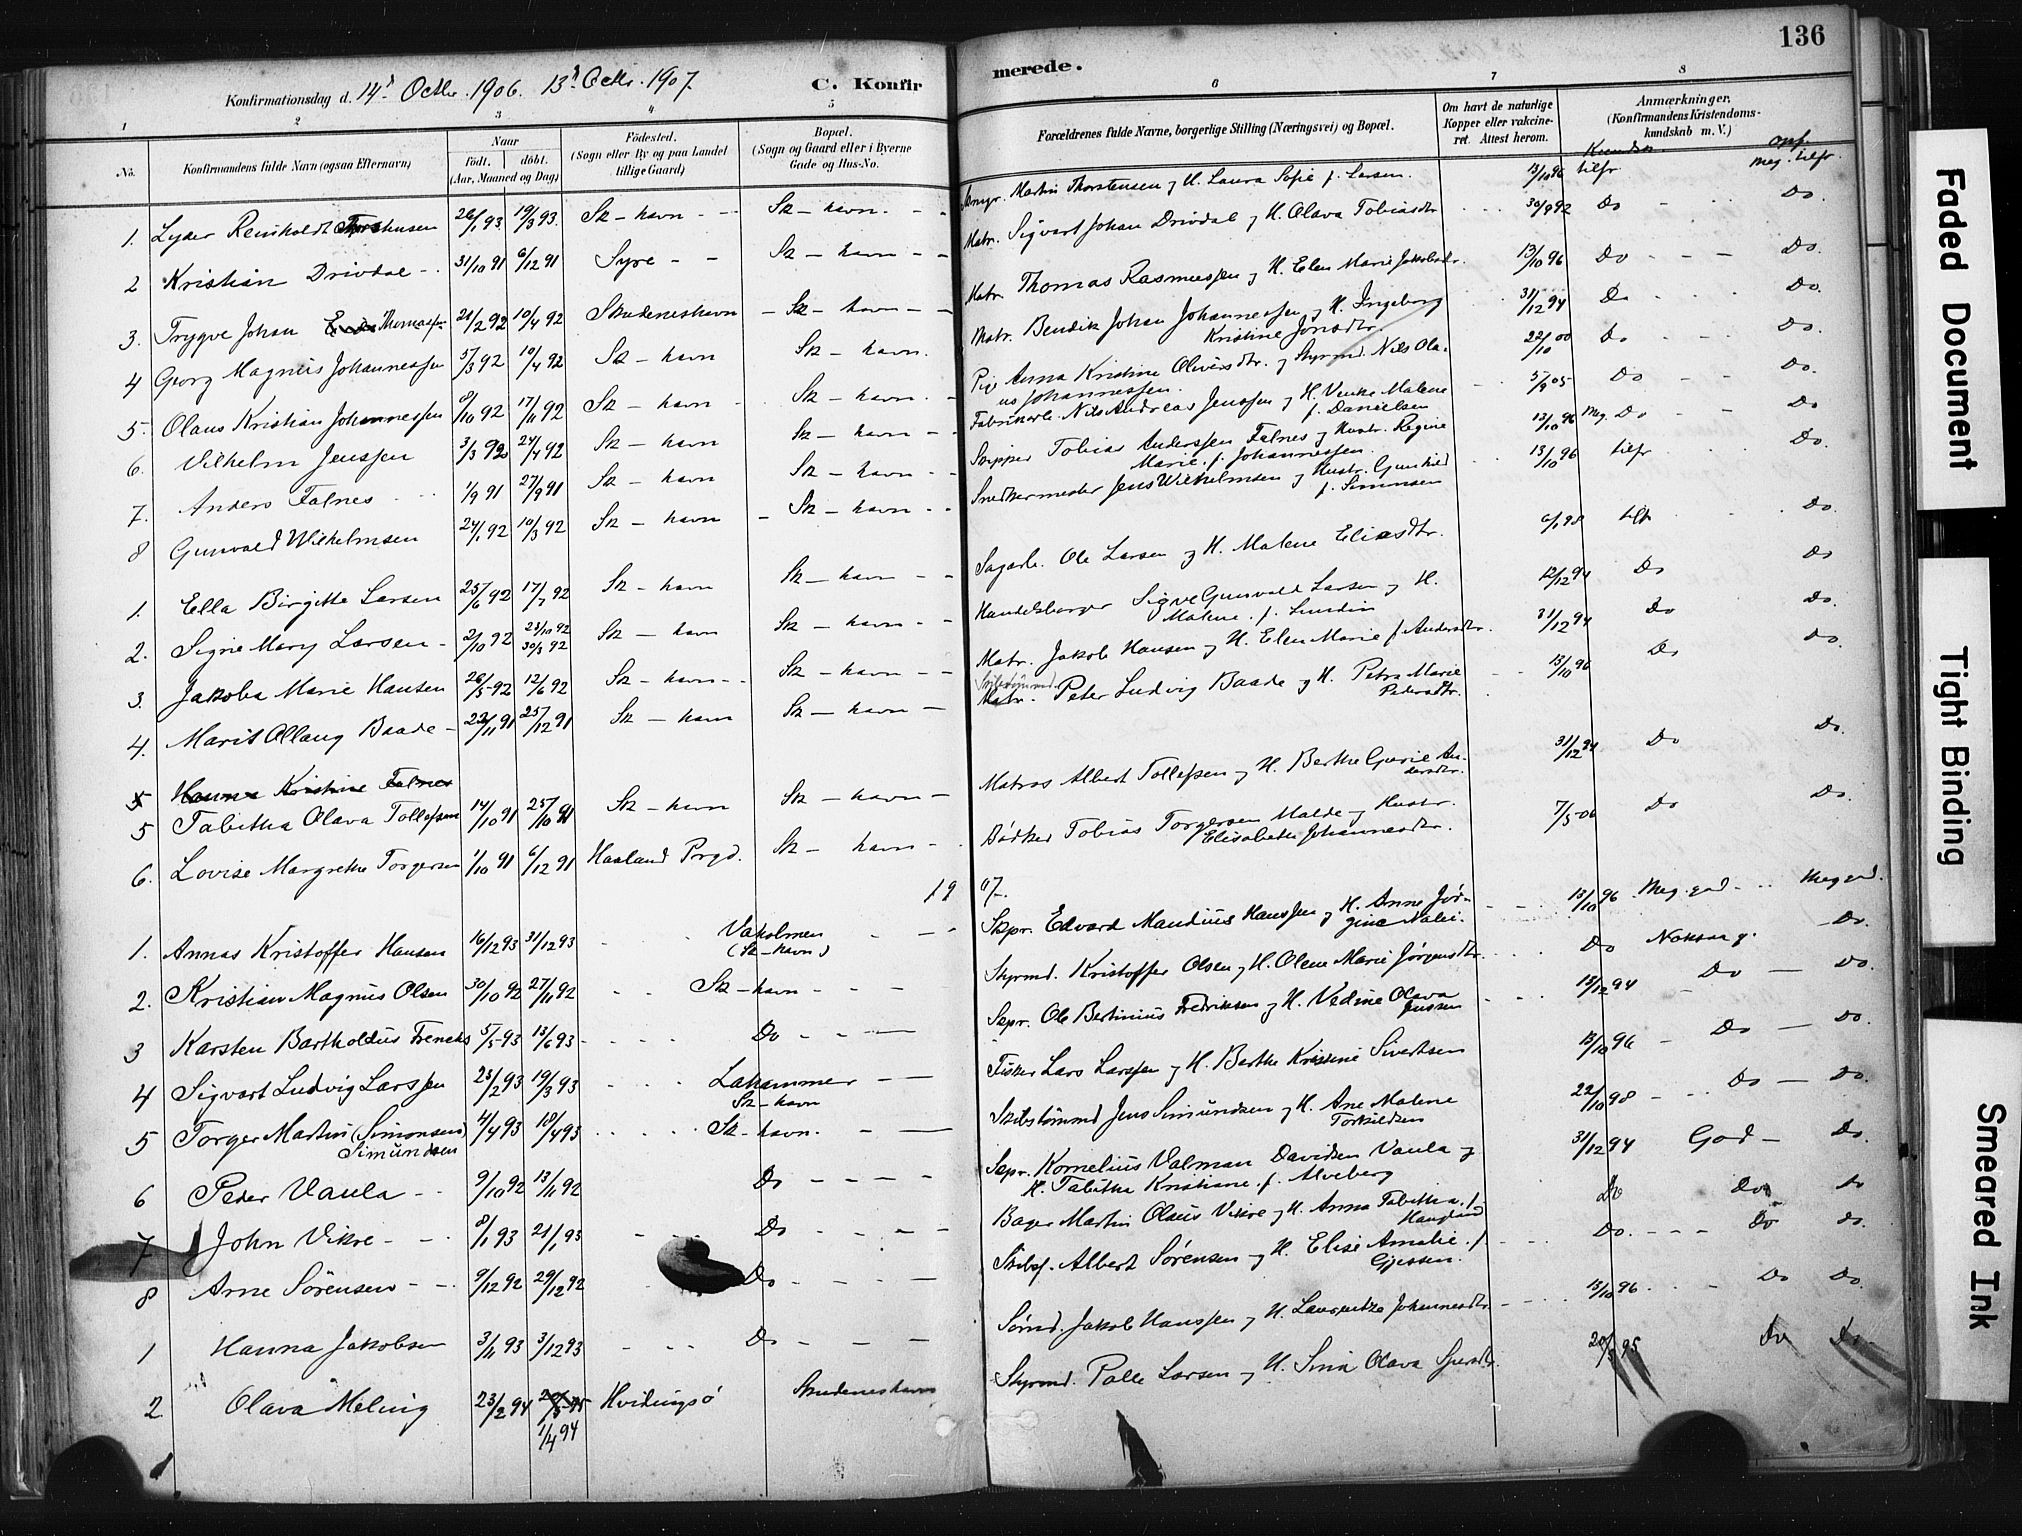 136
Konfirmationsdag d. 14d Octbr. 1906. 13d Octbr. 1907. C. Konfir
merede.
1 2 3 4 5 6 7 8
No. Konfirmandens fulde Navn (ogsaa Efternavn) Naar født. døbt. (Aar, Maaned og Dag) Fødested. (Sogn eller By og paa Landet tillige Gaard) Bopæl. (Sogn og Gaard eller i Byerne Gade og Hus-No.
Forældrenes fulde Navne, borgerlige Stilling (Næringsvei) og Bopæl. Om havt de naturlige Kopper eller vakcineret. Attest herom. Anmærkninger. (Konfirmandens Kristendomskundskab m. V.)
1. Lyder Reinholdt 26/1 93 19/3 93. Sk-havn - - Sk-havn. - - Martin Thorstensen og H. Laura Sofie f. Larsen. 13/10 96 tilfr meg. tilfr.
2 Kristian Drivdal - 31/10 91 6/12 91 Syre - - Sk-havn - - Matr. Sigvart Johan Drivdal og H. Olava Tobiasdtr 30/9 92 Do Do.
3. Trygve Johan Thomassen 21/2 92 10/4 92 Skudeneshavn - Sk-havn - - Matr. Thomas Rasmussen og H. Elen Marie Jakobsdtr. 13/10 96 Do Do.
4 Georg Magnus Johannessen 5/3 92 10/4 92 Sk-havn Sk-havn. Matr. Bendik Johan Johannessen og H. Ingeborg Kristine Jonsdtr. 31/12 94 Do Do.
5. Olaus Kristian Johannessen 8/10 92 17/11 92 Sk-havn - Sk-havn. - Pige Anna Kristine Oliversdtr. og Styrmd. Nils Olaus Johannessen. 22/10 00 Do Do.
6. Vilhelm Jenssen 3/3 92 24/4 92 Sk-havn Sk-havn - - Fabrikarb. Nils Andreas Jenssen og H. Venke Malene f. Danielsen 5/9 05 Do Do.
7. Anders Falnes 1/9 91 27/9 91 Sk-havn Sk-havn - - Skipper Tobias Anderssen Falnes og Hustr. Regine Marie f. Johannessen. 13/10 96 Meg. Do Do
8 Gunvald Wilhelmsen 24/1 92 10/3 92 Sk-havn - Sk-havn - - Snedkermester Jens Wilhelmsen og Hustr. Gunhild f. Simonsen 13/10 96 tilfr Do.
1. Ella Birgitte Larsen 25/6 92 17/7 92 Sk-havn Sk-havn - - Sagarb. Ole Larsen og H. Malene Eliasdtr. 6/1 98 tilfr Do.
2. Signe Mary Larsen - 2/10 92 23/10 92 30/3 92 Sk-havn Sk-havn - - Handelsborger Sigve Gunvald Larsen og H. Malene f. Lundin 12/12 94 Do Do
3. Jakoba Marie Hansen 26/5-92 12/6 92 Sk-havn - - Sk-havn - - Matr. Jakob Hansen og H. Elen Marie f. Andersdtr. 31/12 94 Do Do.
4. Marit Ollaug Baade - 23/11 91 25/12 91 Sk-havn Sk-havn - Matr. Peter Ludvig Baade og H. Petra Marie Pedersdtr. 13/10 96 Do Do.
5 Hanna Kristine Falnes
5 Tabitha Olava Tollefsen 14/10 91 25/10 91 Sk-havn Sk-havn - Matros Albert Tollefsen og H. Berthe Gurie Andersdtr. 31/12 94 Do Do.
6. Lovise Margrethe Torgersen 1/10 91 6/12 91 Haaland Prgd. Sk-havn - Bødker Tobias Torgersen Malde og Hustr. Elisabeth Johannesdtr. 7/5-06 Do Do.
1907.
1. Annas Kristoffer Hansen 16/12 93 31/12 93 Vaholmen (Sk-havn) - - Skpr. Edvard Mandius Hanssen og H. Anne Jørgine Malie. 13/10 96 Meg. god Meg god.
2. Kristian Magnus Olsen 30/10 92 27/11 92 Sk-havn - - - Styrmd. Kristoffer Olsen og H. Olene Marie Jørgensdtr. Do Noksaa g. Do.
3 Karsten Bartholdus 5/5-93 13/6 93 Do - - Skpr. Ole Bertinius Fredriksen og H. Vedine Olava Jenssen 13/12 94 Do Do.
4 Sigvart Ludvig Larssen 23/2 93 19/3 93 Lahammer Sk-havn - - Fisker Lars Larssen og H. Berthe Kristine Sivertsen 13/10 96 Do Do.
5 Torger Martin (Simonsen) Simundsen 4/4 93 18/4 93 Sk-havn. - - Skibstømmd Jens Simundsen og H. Ane Malene Torkildsen 22/10 98 Do Do.
6 Peder Vaula - - 9/10 92 13/11 92 Do - - - - Skpr. Kornelius Valman Davidsen Vaula og H. Tabitha Kristiane f. Alveberg 31/12 94 God - Do.
7 John Vikre - - 8/1 93 21/1 93 Do - - - - Bager Martin Olaus Vikre og H. Anna Tabitha f. Do Do Do
8 Arne Sørensen - - 9/12 92 29/12 92 Do - - - - Skibsf. Albert Sørensen og H. Elise Amalie f. Gjessen. Do. Do Do.
1 Hanna Jakobsen 3/11 93 3/12 93 Do - - - Sømd. Jakob Hanssen og H. Laurentze Johannesdtr. 13/10 96 Do Do.
2 Olava Meling 23/2 94 1/4 94 Hvidingsø Skudeneshavn Styrmd. Palle Larsen og H. Sina Olava 20/5 95 Do Do
Faded Document
Tight Binding
Smeared Ink